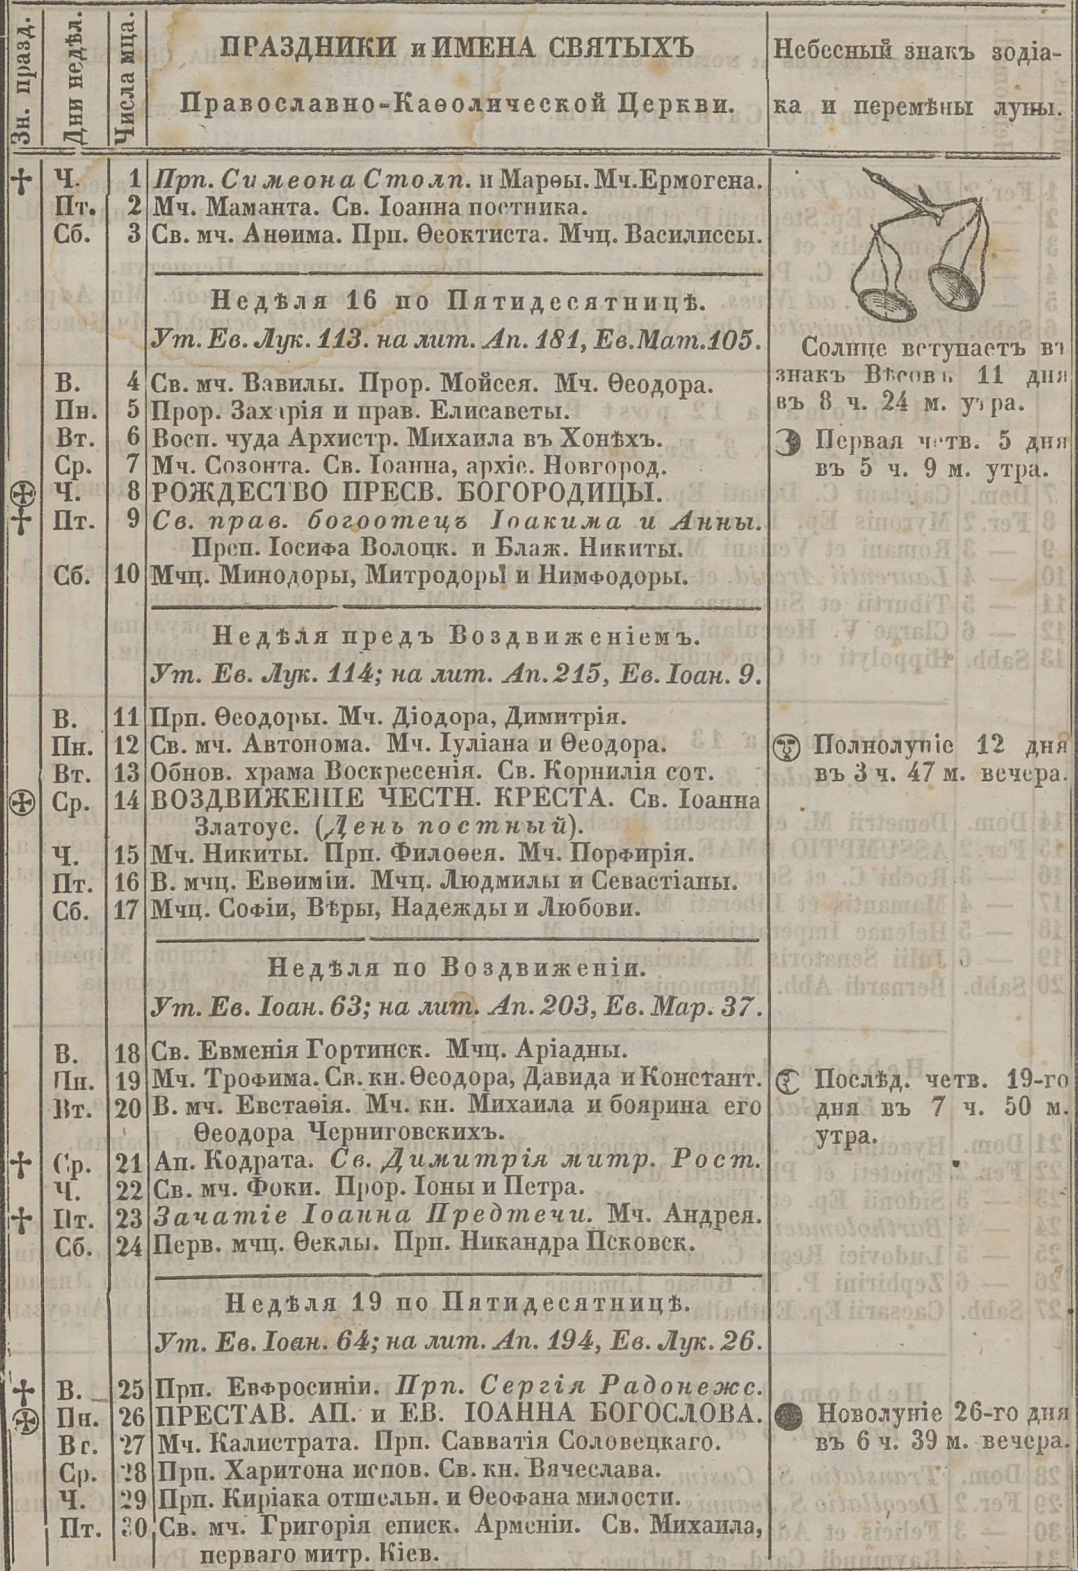 Зн. празд.
Дни недѣл.
Числа мца.
ПРАЗДНИКИ и ИМЕНА СВЯТЫХЪ
Православно-Каѳолической Церкви.
Небесный знакъ зодіа-
ка и перемѣны луны.
† Ч. 1 Прп. Симеона Столп. и Марѳы. Мч. Ермогена.
Пт. 2 Мч. Маманта. Св. Іоанна постника.
Сб. 3 Св. мч. Анѳима. Прп. Ѳеоктиста. Мчц. Василиссы.
Недѣля 16 по Пятидесятницѣ.
Ут. Ев. Лук. 113. на лит. Ап. 181, Ев. Мат. 105.
В. 4 Св. мч. Вавилы. Прор. Мойсея. Мч. Ѳеодора.
Пн. 5 Прор. Захарія и прав. Елисаветы.
Вт. 6 Восп. чуда Архистр. Михаила въ Хонѣхъ.
Ср. 7 Мч. Созонта. Св. Іоанна, архіе. Новгород.
Ч. 8 РОЖДЕСТВО ПРЕСВ. БОГОРОДИЦЫ.
† Пт. 9 Св. прав. богоотецъ Іоакима и Анны.
Преп. Іосифа Волоцк. и Блаж. Никиты.
Сб. 10 Мчц. Минодоры, Митродоры и Нимфодоры.
Недѣля предъ Воздвиженіемъ.
Ут. Ев. Лук. 114; на лит. Ап. 215, Ев. Іоан. 9.
В. 11 Прп. Ѳеодоры. Мч. Діодора, Димитрія.
Пн. 12 Св. мч. Автонома. Мч. Іуліана и Ѳеодора.
Вт. 13 Обнов. храма Воскресенія. Св. Корнилія сот.
Ср. 14 ВОЗДВИЖЕНІЕ ЧЕСТН. КРЕСТА. Св. Іоанна
Златоус. (День постный).
Ч. 15 Мч. Никиты. Прп. Филоѳея. Мч. Порфирія.
Пт. 16 В. мчц. Евѳиміи. Мчц. Людмилы и Севастіаны.
Сб. 17 Мчц. Софіи, Вѣры, Надежды и Любови.
Недѣля по Воздвиженіи.
Ут. Ев. Іоан. 63; на лит. Ап. 203, Ев. Мар. 37.
В. 18 Св. Евменія Гортинск. Мчц. Аріадны.
Пн. 19 Мч. Трофима. Св. кн. Ѳеодора, Давида и Констант.
Вт. 20 В. мч. Евстаѳія. Мч. кн. Михаила и боярина его
Ѳеодора Черниговскихъ.
† Ср. 21 Ап. Кодрата. Св. Димитрія митр. Рост.
Ч. 22 Св. мч. Фоки. Прор. Іоны и Петра.
† Пт. 23 Зачатіе Іоанна Предтечи. Мч. Андрея.
Сб. 24 Перв. мчц. Ѳеклы. Прп. Никандра Псковск.
Недѣля 19 по Пятидесятницѣ.
Ут. Ев. Іоан. 64; на лит. Ап. 194, Ев. Лук. 26.
† В. 25 Прп. Евфросиніи. Прп. Сергія Радонежс.
Пн. 26 ПРЕСТАВ. АП. и ЕВ. ІОАННА БОГОСЛОВА.
Вт. 27 Мч. Калистрата. Прп. Савватія Соловецкаго.
Ср. 28 Прп. Харитона испов. Св. кн. Вячеслава.
Ч. 29 Прп. Киріака отшельн. и Ѳеофана милости.
Пт. 30 Св. мч. Григорія еписк. Арменіи. Св. Михаила,
перваго митр. Кіев.
Солнце вступаетъ въ
знакъ Вѣсовъ 11 дня
въ 8 ч. 24 м. утра.
Первая четв. 5 дня
въ 5 ч. 9 м. утра.
Полнолуніе 12 дня
въ 3 ч. 47 м. вечера.
Послѣд. четв. 19-го
дня въ 7 ч. 50 м.
утра.
Новолуніе 26-го дня
въ 6 ч. 39 м. вечера.